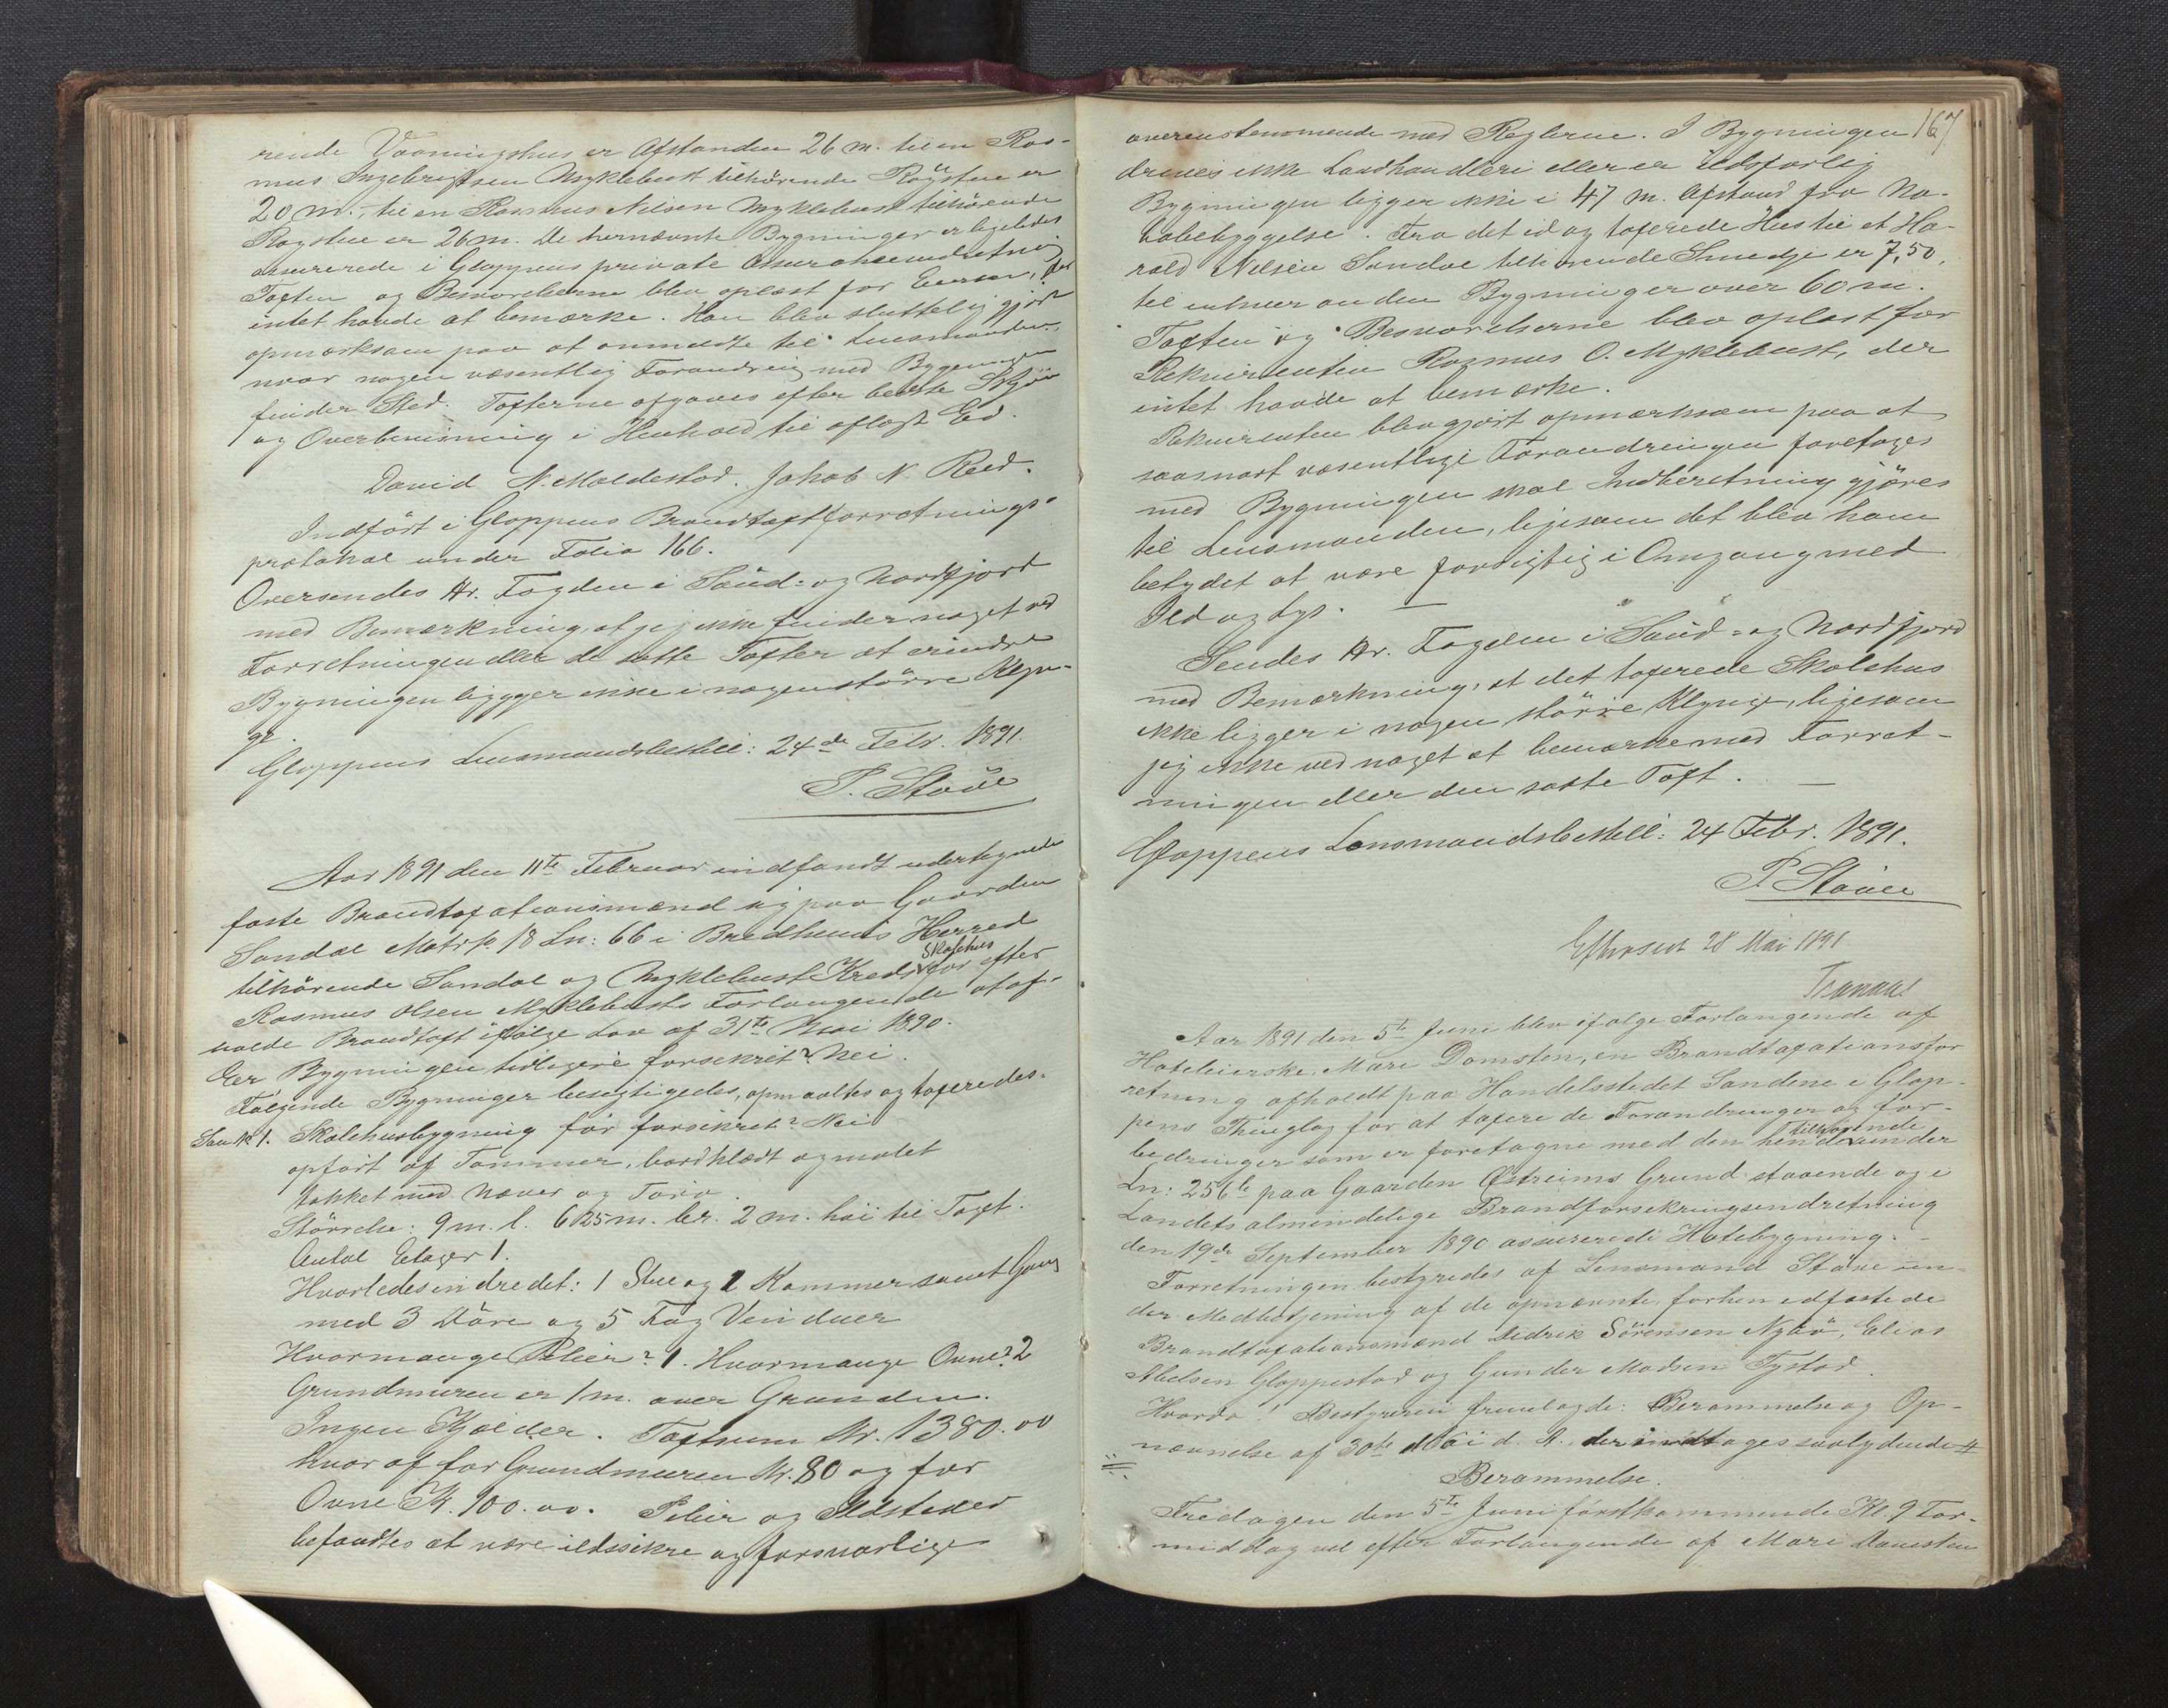 rende Vaaningshus er Afstanden 26 m. til en Ras-
mus Ingebrigtsen Myklebust tilhörende Røgstue er
20 m., til en Rasmus Nilsen Myklebust tilhörende
Røgstue er 26 m. De hernævnte Bygninger er ligeledes
assurerede i Gloppens private Assuranceindretning
Taxten og Besvarelserne blev oplæst for Eieren, der
intet havde at bemærke. Han blev sluttelig gjort
opmærksom paa at anmelde til Lensmanden,
naar nogen væsentlig Forandring med Bygningen
finder Sted. Taxterne afgaves efter bedste Skjön
og Overbevisning i Henhold til aflagt Ed.
David N. Moldestad. Jakob N. Reed.
Indfört i Gloppens Brandtaxtforretnings-
protokol under Folio 166.
Oversendes Hr. Fogden i Sönd- og Nordfjord
med Bemærkning, at jeg ikke finder noget ved
Forretningen eller de satte Taxter at erindre
Bygningen ligger ikke i nogen större Klyn-
ge.
Gloppens Lensmandsbestill: 24de Febr. 1891.
P. Staue
Aar 1891 den 11te Februar indfandt undertegnede
faste Brandtaxationsmænd sig paa Gaarden
Sandal Matr № 18 Ln: 66 i Bredheims Herred
tilhörende Sandal og Myklebust Kreds Skolehus for efter
Rasmus Olsen Myklebusts Forlangende at af-
holde Brandtaxt ifölge Lov af 31te Mai 1890.
Er Bygningen tidligere forsekret? Nei.
Fölgende Bygninger besigtigedes, opmaaltes og taxeredes.
Lau № 1. Skolehusbygning för forsikret? Nei
opfört af Tømmer, bordklædt og malet
takket med Næver og Torv.
Störrelse: 9 m. l. 6,25 m. br. 2 m. höi til Taget.
Antal Etager 1.
Hvorledes indredet: 1 Stue og 1 Kammer samt Gang
med 3 Döre og 5 Fag Vinduer
Hvormange Piber? 1. Hvormange Ovne? 2
Grundmuren er 1 m. over Grunden.
Ingen Kjælder. Taxtsum Kr. 1380.00
hvor af for Grundmuren Kr. 80 og for
Ovne Kr. 100.00. Piber og Ildsteder
befandtes at være ildssikre og forsvarlige
167
overenstemmende med Reglerne. I Bygningen
drives ikke Landhandleri eller er ildsfarlig
Bygningen ligger ikke i 47 m. Afstand fra Na-
bobebyggelse. Fra det idag taxerede Hus til et Ha-
rald Nilsen Sandal tilhörende Smedje er 7,50,
til enhver anden Bygninger over 60 m.
Taxten og Besvarelserne blev oplæst for
Rekvirenten Rasmus O. Myklebust, der
intet havde at bemærke.
Rekvirenten blev gjort opmærksom paa at
saasnart væsentlige Forandringer foretages
med Bygningen skal Indberetning gjöres
til Lensmanden, ligesom det blev ham
betydet at være forsigtig i Omgang med
Ild og Lys. —
Sendes Hr. Fogden i Sönd- og Nordfjord
med Bemærkning, at det taxerede Skolehus
ikke ligger i nogen större Klynge, ligesom
jeg ikke ved noget at bemærke med Forret-
ningen eller den satte Taxt. —
Gloppens Lensmandsbestill: 24 Febr. 1891.
P. Staue
28 Mai 1891
Aar 1891 den 5te Juni blev ifølge Forlangende af
Hoteleierske Mari Domsten, en Brandtaxationsfor
retning afholdt paa Handelsstedet Sandene i Glop-
pens Thinglag for at taxere de Forandringer og for-
bedringer som er foretagne med den hende tilhörende under
Ln: 256b paa Gaarden Østreims Grund staaende og i
Landets almindelige Brandforsekringsindretning
den 19de September 1890 assurerede Hotelbygning. -
Forretningen bestyredes af Lensmand Staue un-
der Medbetjening af de opnævnte, forhen edfæstede
Brandtaxationsmænd Didrik Sörensen Nybö, Elias
Abelsen Gloppestad og Gunder Madsen Tystad.
Hvorda! Bestyreren fremlagde: Berammelse og Op-
nævnelse af 30te Mai d. A., der indtages saalydende #
Berammelse.
Fredagen den 5te Juni förstkommende Kl. 9 For-
middag vil efter Forlangende af Mari Domsten